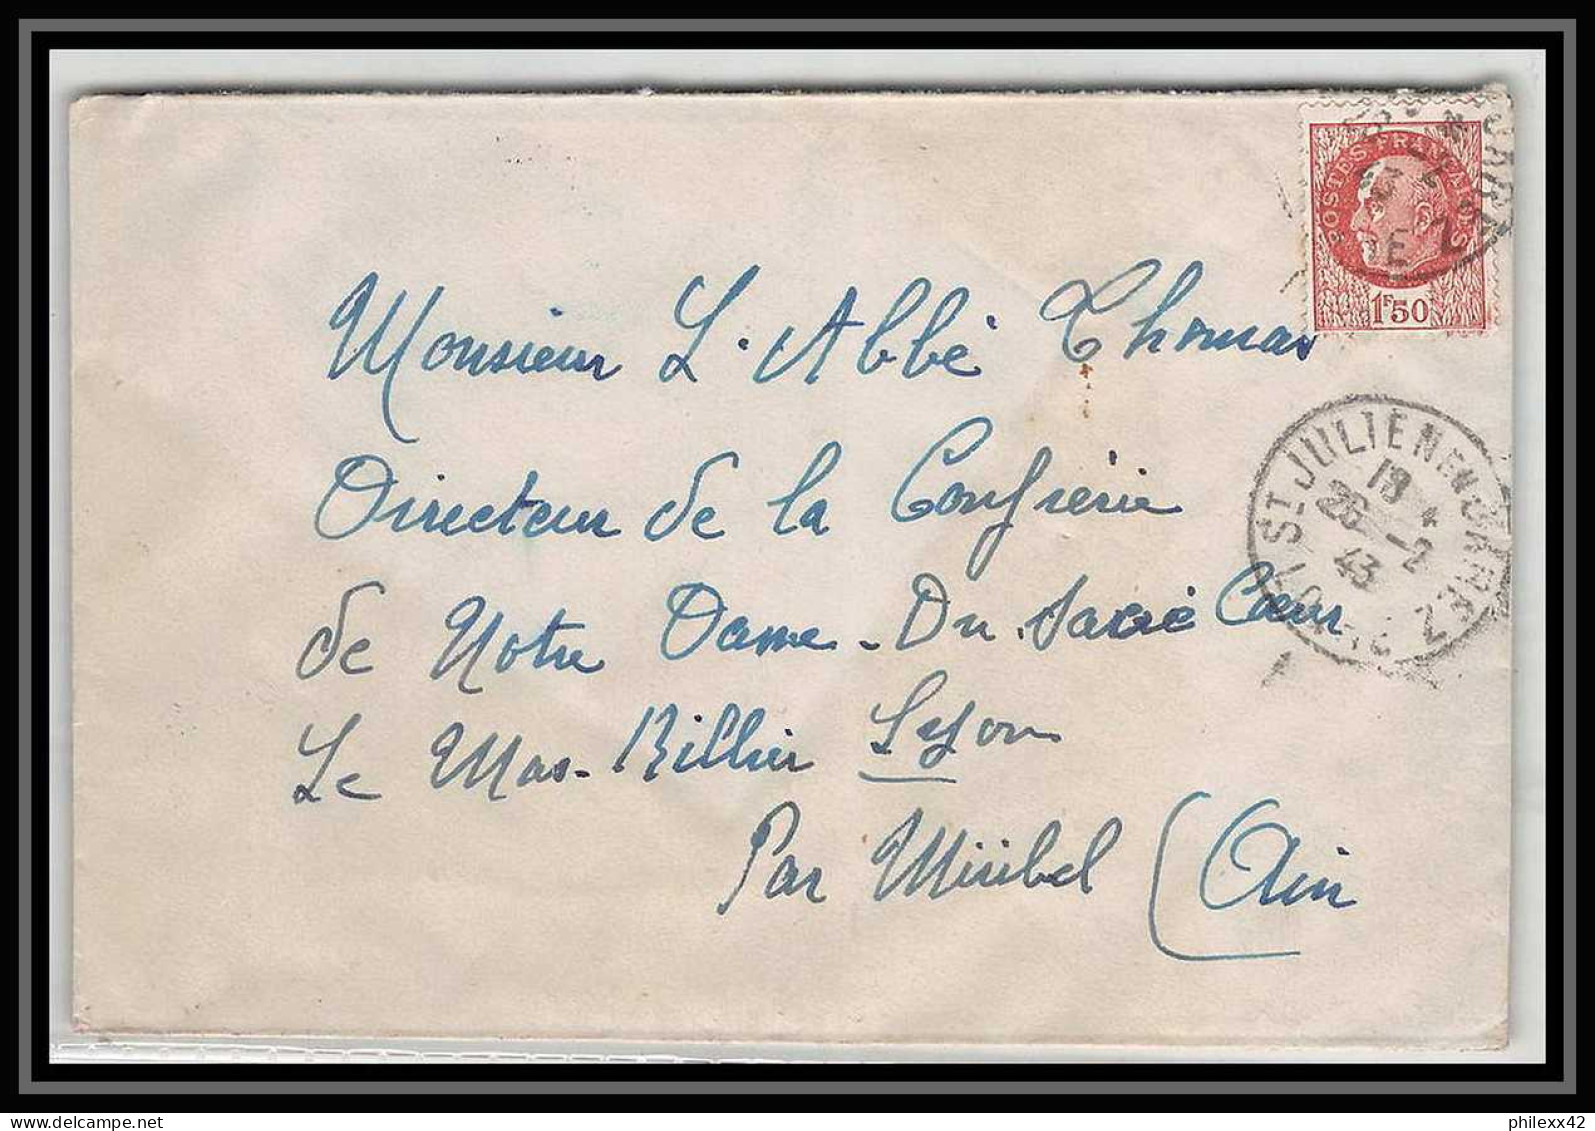 POSTES FRANÇAISES
1F50
Monsieur L'Abbé Thomas
ST JULIEN EN JARREZ
18
26 -2
43
LOIRE
Directeur de la Confrérie
de Notre Dame. Du Sacré Cœur
Le Mas-Rillier Lyon
Par Miribel (Ain
philexx42